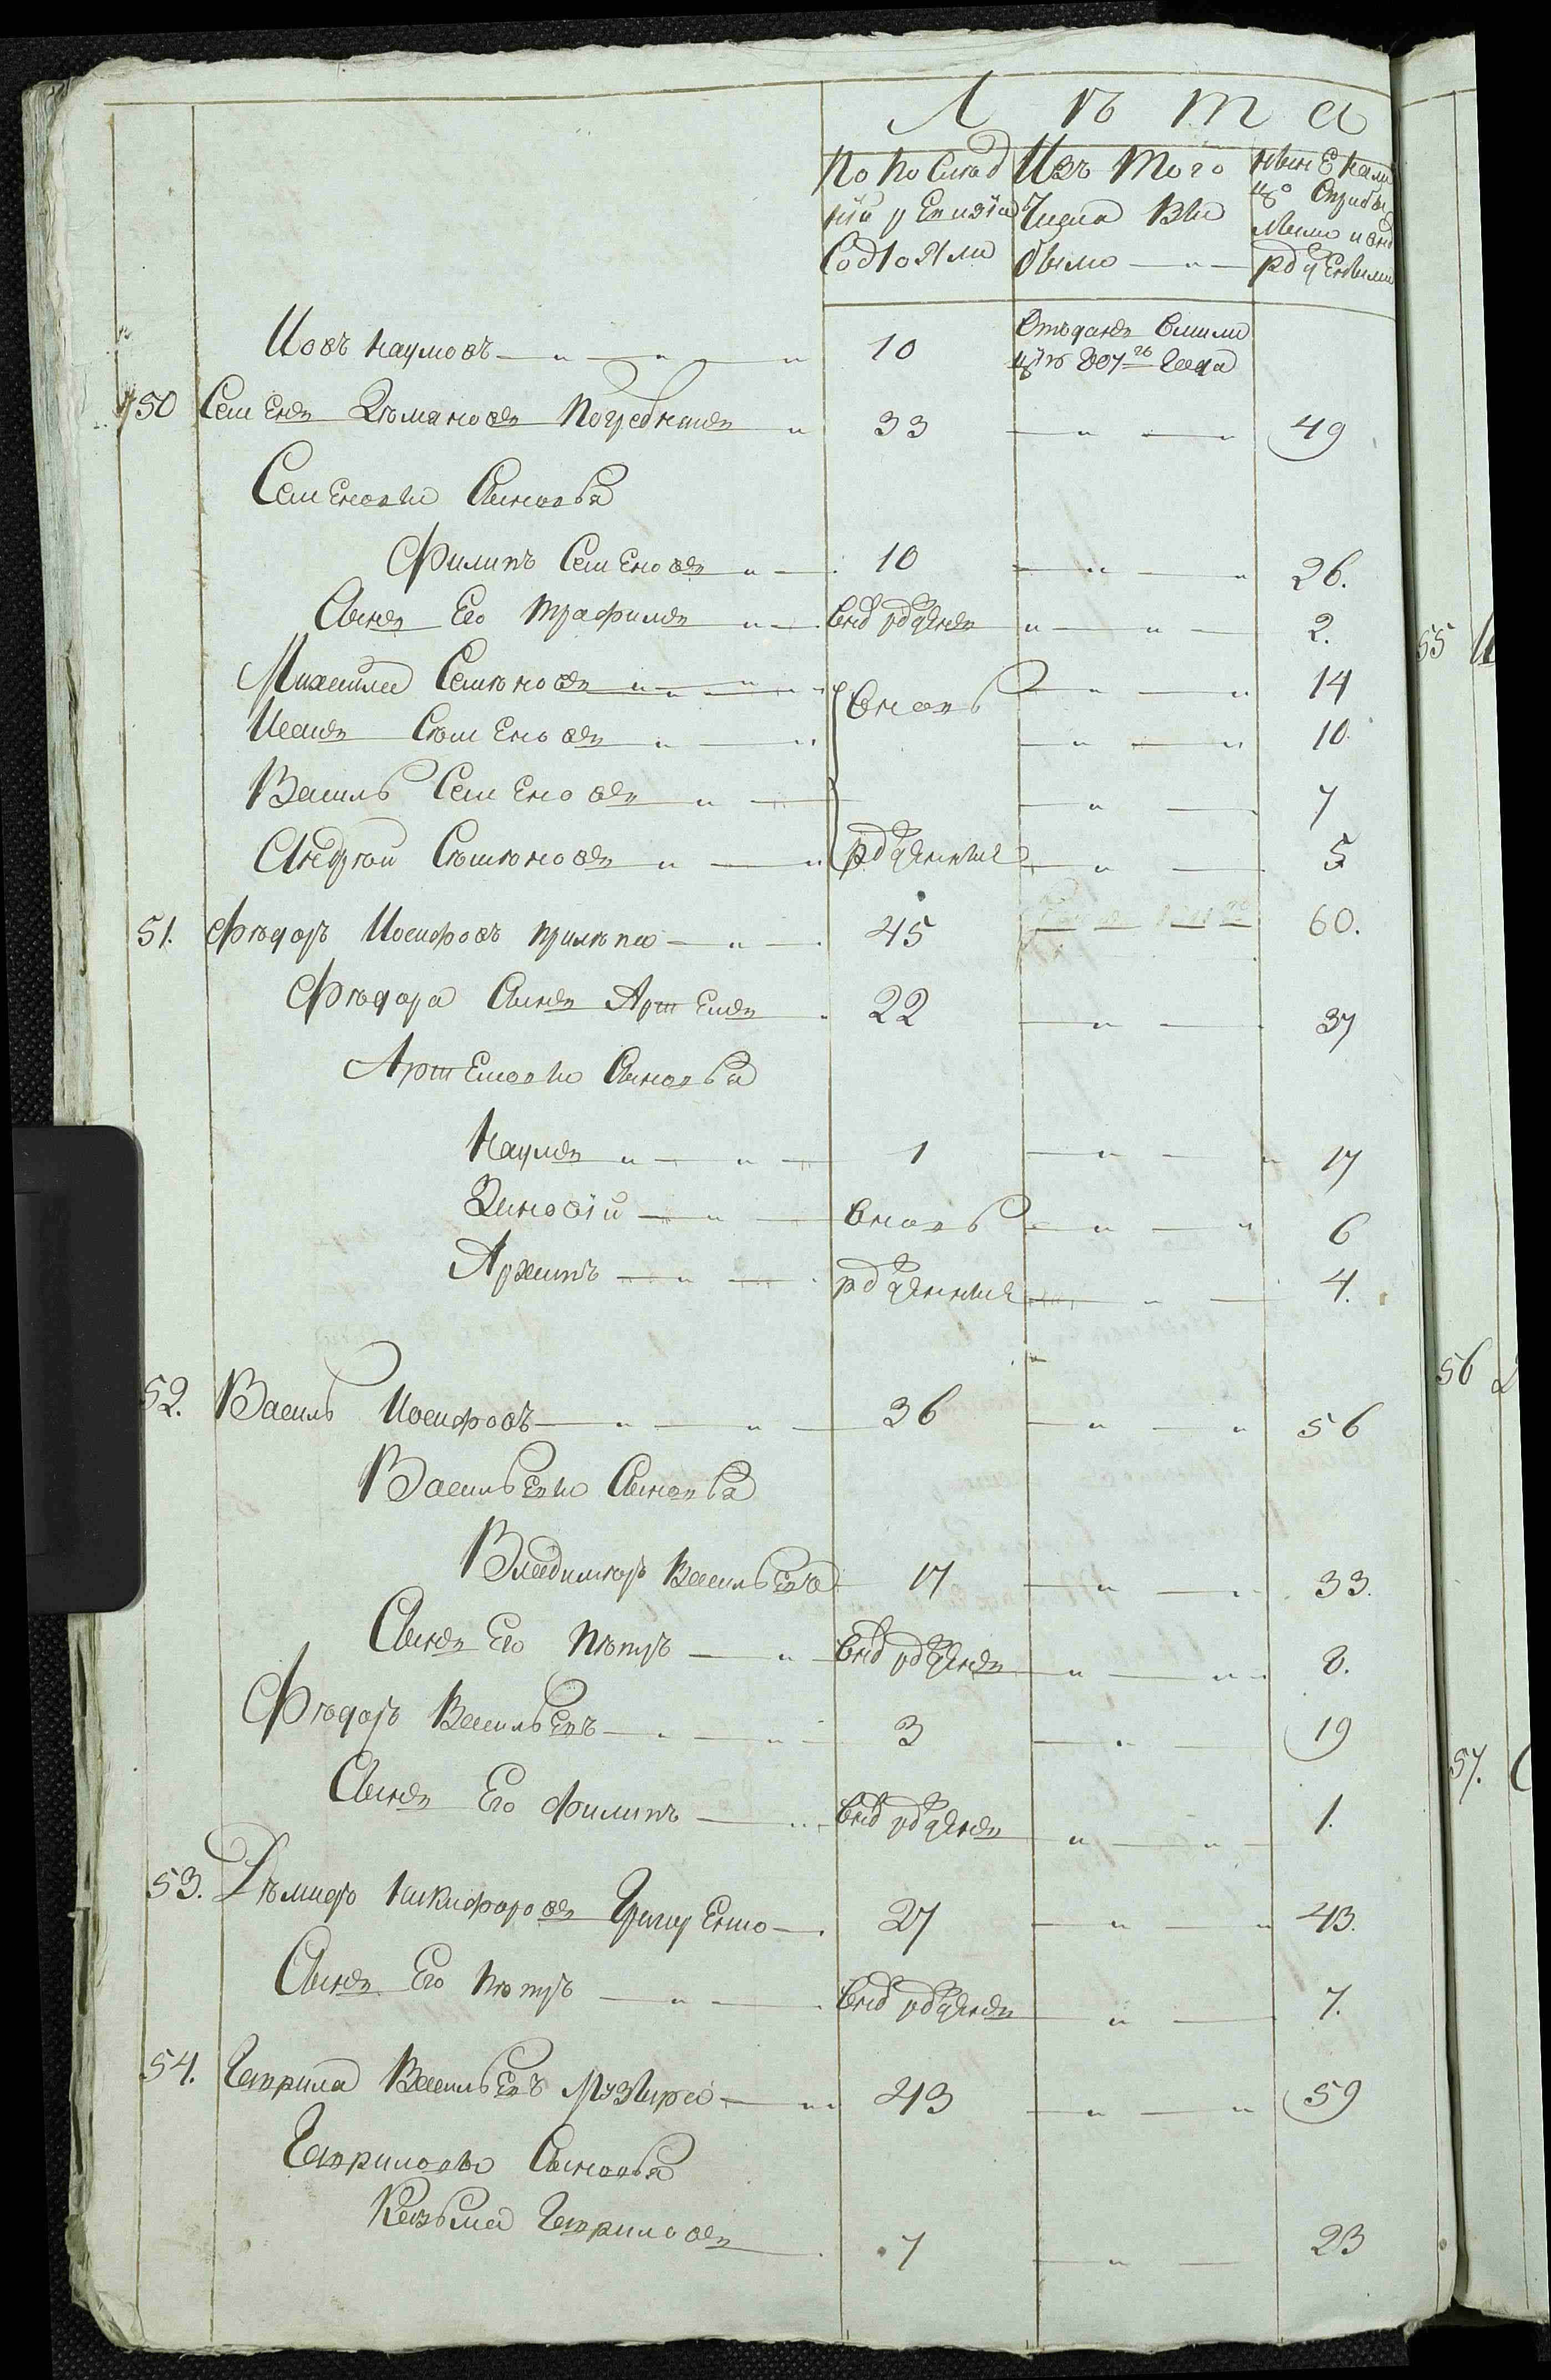 Лѣта
По послѣд Изъ того Ныне на ли
ней ревизіи числа вы цо с прибы
состояли было лыми и
рожденными
Іовъ Наумовъ 10 Отъданъ в мили
цію 807го года
50 Семенъ Погребнякъ 33 49
Семеновы сыновья
Филипъ Семеновъ 10 26.
Сынъ его Трафимъ внорожденъ 2.
Михаила Семеновъ вновь 14
Иванъ Семеновъ 10
Василь Семеновъ 7
Андрѣй Семеновъ рожденные 5
51. Фѣдоръ Иосифовъ 45 60.
Фѣдора сынъ Артемъ 22 37
Артемовы сыновья
Наумъ 1 17
Зиновій вновь 6
Архипъ рожденные 4.
52. Василь Иосифовъ 36 56
Васильевы сыновья
Владимѣръ Васильевъ 17 33.
Сынъ его Пѣтръ внорожденъ 8.
Фѣдоръ Васильевъ 3 19
Сынъ его Филипъ внорожденъ 1.
53. Дѣмидъ Никифоровъ Гриценко 27 43.
Сынъ его Пѣтръ внорожденъ 7.
54. Гаврила Васильевъ Музыря 43 59
Гавриловы сыновья
Козьма Гавриловъ 7 23
55
56
57.